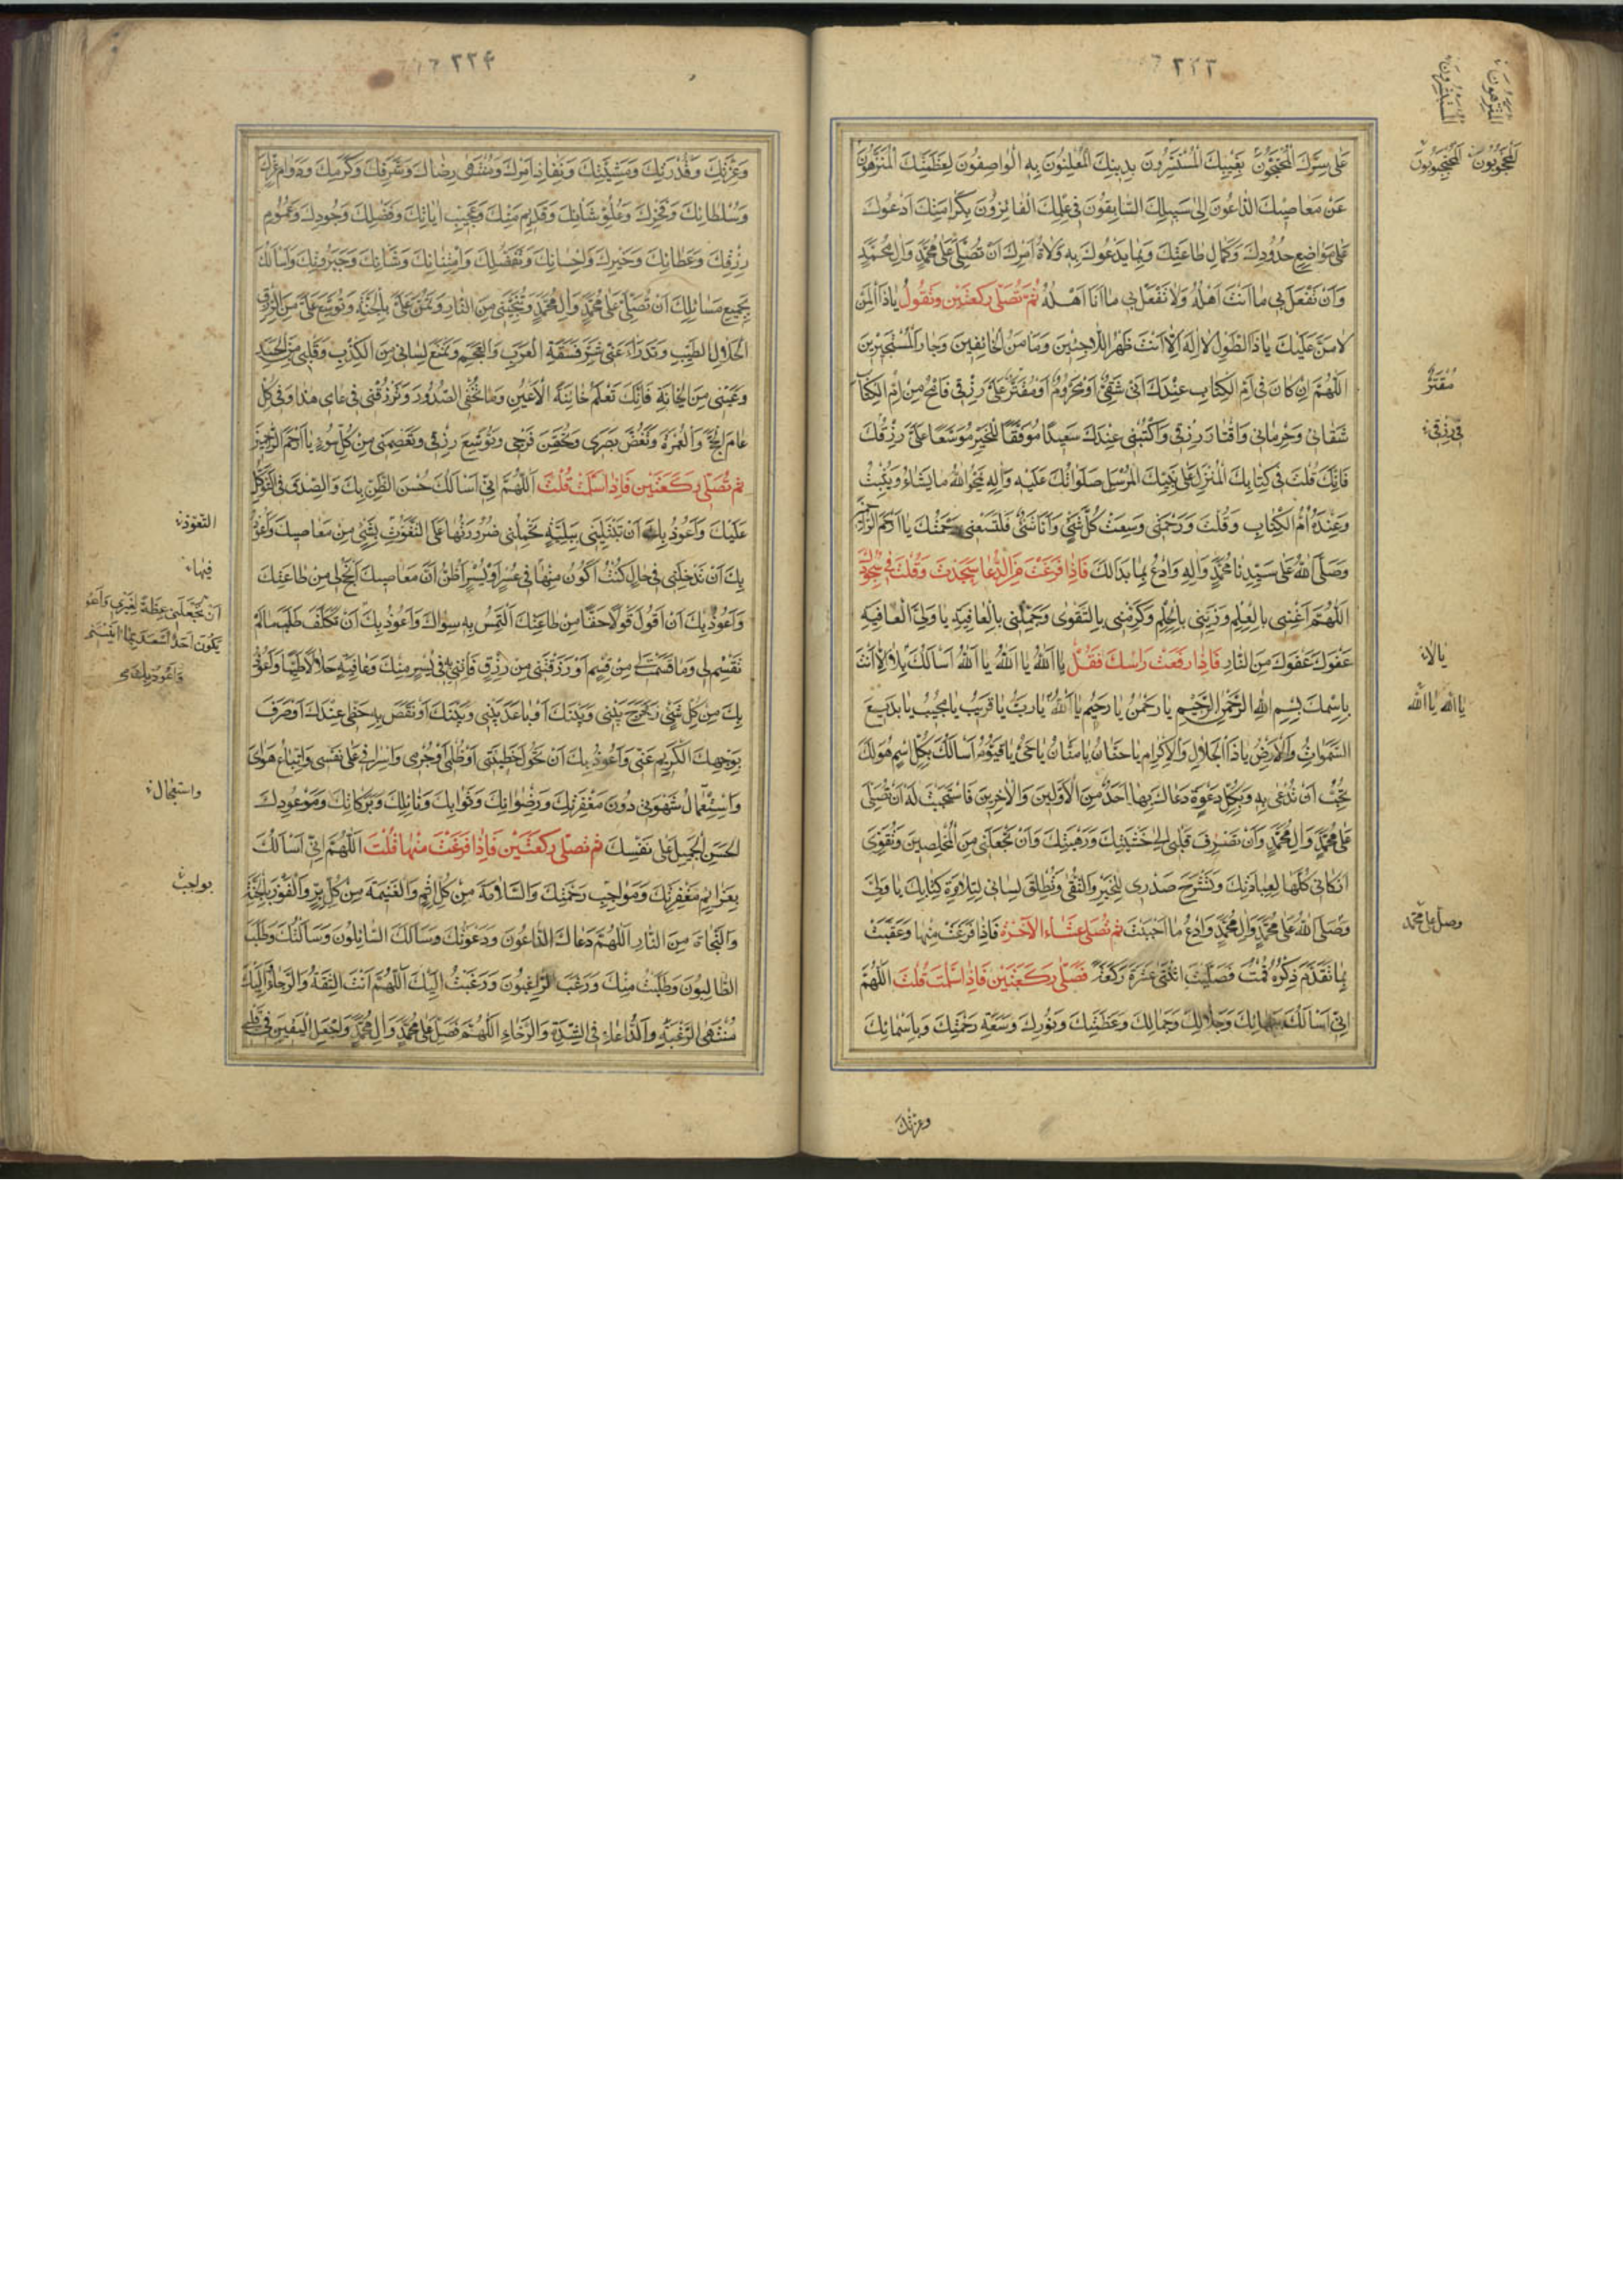 ٢٢٣
المتنزهون
المستسرون
المحجوبون المحتجبون
على سرك المحتجبون بغيبك المستسرون بدينك المعلنون به الواصفون لعظمتك المتنزهون
عن معاصيك الداعون الى سبيلك السابقون في علمك الفائزون بكرامتك ادعوك
على مواضع حدودك وكمال طاعتك وبما يدعوك به ولاة امرك ان تصلى على محمد وال محمد
وان تفعل بي ما انت اهله ولا تفعل بي ما انا اهله ثم تصلى ركعتين وتقول يا ذا المن
لا من عليك يا ذا الطول لا اله الا انت ظهر اللاجئين ومامن الخائفين وجار المستجيرين
اللهم ان كان في ام الكتاب عندك انى شقى او محروم او مقتر على رزقى فامح من ام الكتاب
مقتر
شقائى وحرمانى واقتار رزقى واكتبنى عندك سعيدا موفقا للخير موسعا على رزقك
في رزقي
فانك قلت في كتابك المنزل على نبيك المرسل صلواتك عليه واله يمحو الله ما يشاء ويثبت
وعنده ام الكتاب وقلت ورحمتى وسعت كل شئ وانا شئ فلتسعنى رحمتك يا ارحم الراحمين
وصلى الله على سيدنا محمد واله وادع بما بدا لك فاذا فرغت من الدعا سجدت وقلت في سجودك
اللهم اغننى بالعلم وزينى بالحلم وكرمنى بالتقوى وجملنى بالعافية يا ولى العافية
عفوك عفوك من النار فاذا رفعت راسك فقل يا الله يا الله يا الله اسالك بلا اله الا انت
يا لا
باسمك بسم الله الرحمن الرحيم يا رحمن يا رحيم يا الله يا رب يا قريب يا مجيب يا بديع
يا الله يا الله
السموات والارض يا ذا الجلال والاكرام يا حنان يا منان يا حى يا قيوم اسالك بكل اسم هو لك
تحب ان تدعى به وبكل دعوة دعاك بها احد من الاولين والاخرين فاستجبت له ان تصلى
على محمد وال محمد وان تصرف قلبى الى خشيتك ورهبتك وان تجعلنى من المخلصين وتقوى
اركانى كلها لعبادتك وتشرح صدرى للخير والتقى وتطلق لسانى لتلاوة كتابك يا ولى
وصلى الله على محمد وال محمد وادع ما احببت ثم تصلى عشاء الآخرة فاذا فرغت منها وعقبت
وصل على محمد
بما تقدم ذكره قمت فصليت اثنتى عشرة ركعة فصلى ركعتين فاذا سلمت قلت اللهم
انى اسالك ببهائك وجلالك وجمالك وعظمتك وبنورك وسعة رحمتك وباسمائك
وعزتك
٢٢٤
وعزتك وقدرتك ومشيتك ونفاذ امرك ومنتهى رضاك وشرفك وكرمك ودوام عزك
وسلطانك وفخرك وعلو شانك وقديم منك وعجيب اياتك وفضلك وجودك وعموم
رزقك وعطائك وخيرك واحسانك وتفضلك وامتنانك وشانك وجبروتك واسالك
بجميع مسائلك ان تصلى على محمد وال محمد وتنجينى من النار وتمن على بالجنة وتوسع على من الرزق
الحلال الطيب وتدرا عنى شر فسقة العرب والعجم وتمنع لسانى من الكذب وقلبى من الحسد
وعينى من الخيانة فانك تعلم خائنة الاعين وما تخفى الصدور وترزقنى في عامى هذا وفى كل
عام الحج والعمرة وتغض بصرى وتحصن فرجى وتوسع رزقى وتعصمنى من كل سوء يا ارحم الراحمين
ثم تصلى ركعتين فاذا سلمت قلت اللهم انى اسالك حسن الظن بك والصدق في التوكل
عليك واعوذ بك ان تبتلينى ببلية تحملنى ضرورتها على التغوث بشئ من معاصيك واعوذ
التعوذ
بك ان تدخلنى في حال كنت اكون منها في عسر او يسر اظن ان معاصيك انجح لى من طاعتك
فيها
واعوذ بك ان اقول قولا حقا من طاعتك التمس به سواك واعوذ بك ان تكلف طلب ما لم
ان تجعلنى عظة لغيرى واعوذ
يكون احد اسعد بما اتيتنى
واعوذ بك
تقسم لى وما قسمت لى من قسم او رزقتنى من رزق فاتنى به في يسر منك وعافية حلالا طيبا واعوذ
بك من كل شئ زحزح بينى وبينك او باعد بينى وبينك او نقص به حظى عندك او صرف
بوجهك الكريم عنى واعوذ بك ان تحول خطيئتى او ظلمى او جرمى واسرافى على نفسى واتباع هواى
واستعمال شهوتى دون مغفرتك ورضوانك وثوابك ونائلك وبركاتك وموعودك
واستعجال
الحسن الجميل على نفسك ثم تصلى ركعتين فاذا فرغت منها قلت اللهم انى اسالك
بعزائم مغفرتك وبمواجب رحمتك والسلامة من كل اثم والغنيمة من كل بر والفوز بالجنة
بواجب
والنجاة من النار اللهم دعاك الداعون ودعوتك وسالك السائلون وسالتك وطلب
الطالبون وطلبت منك ورغب الراغبون ورغبت اليك اللهم انت الثقة والرجاء واليك
منتهى الرغبة والدعاء في الشدة والرخاء اللهم فصل على محمد وال محمد واجعل اليقين في قلبى